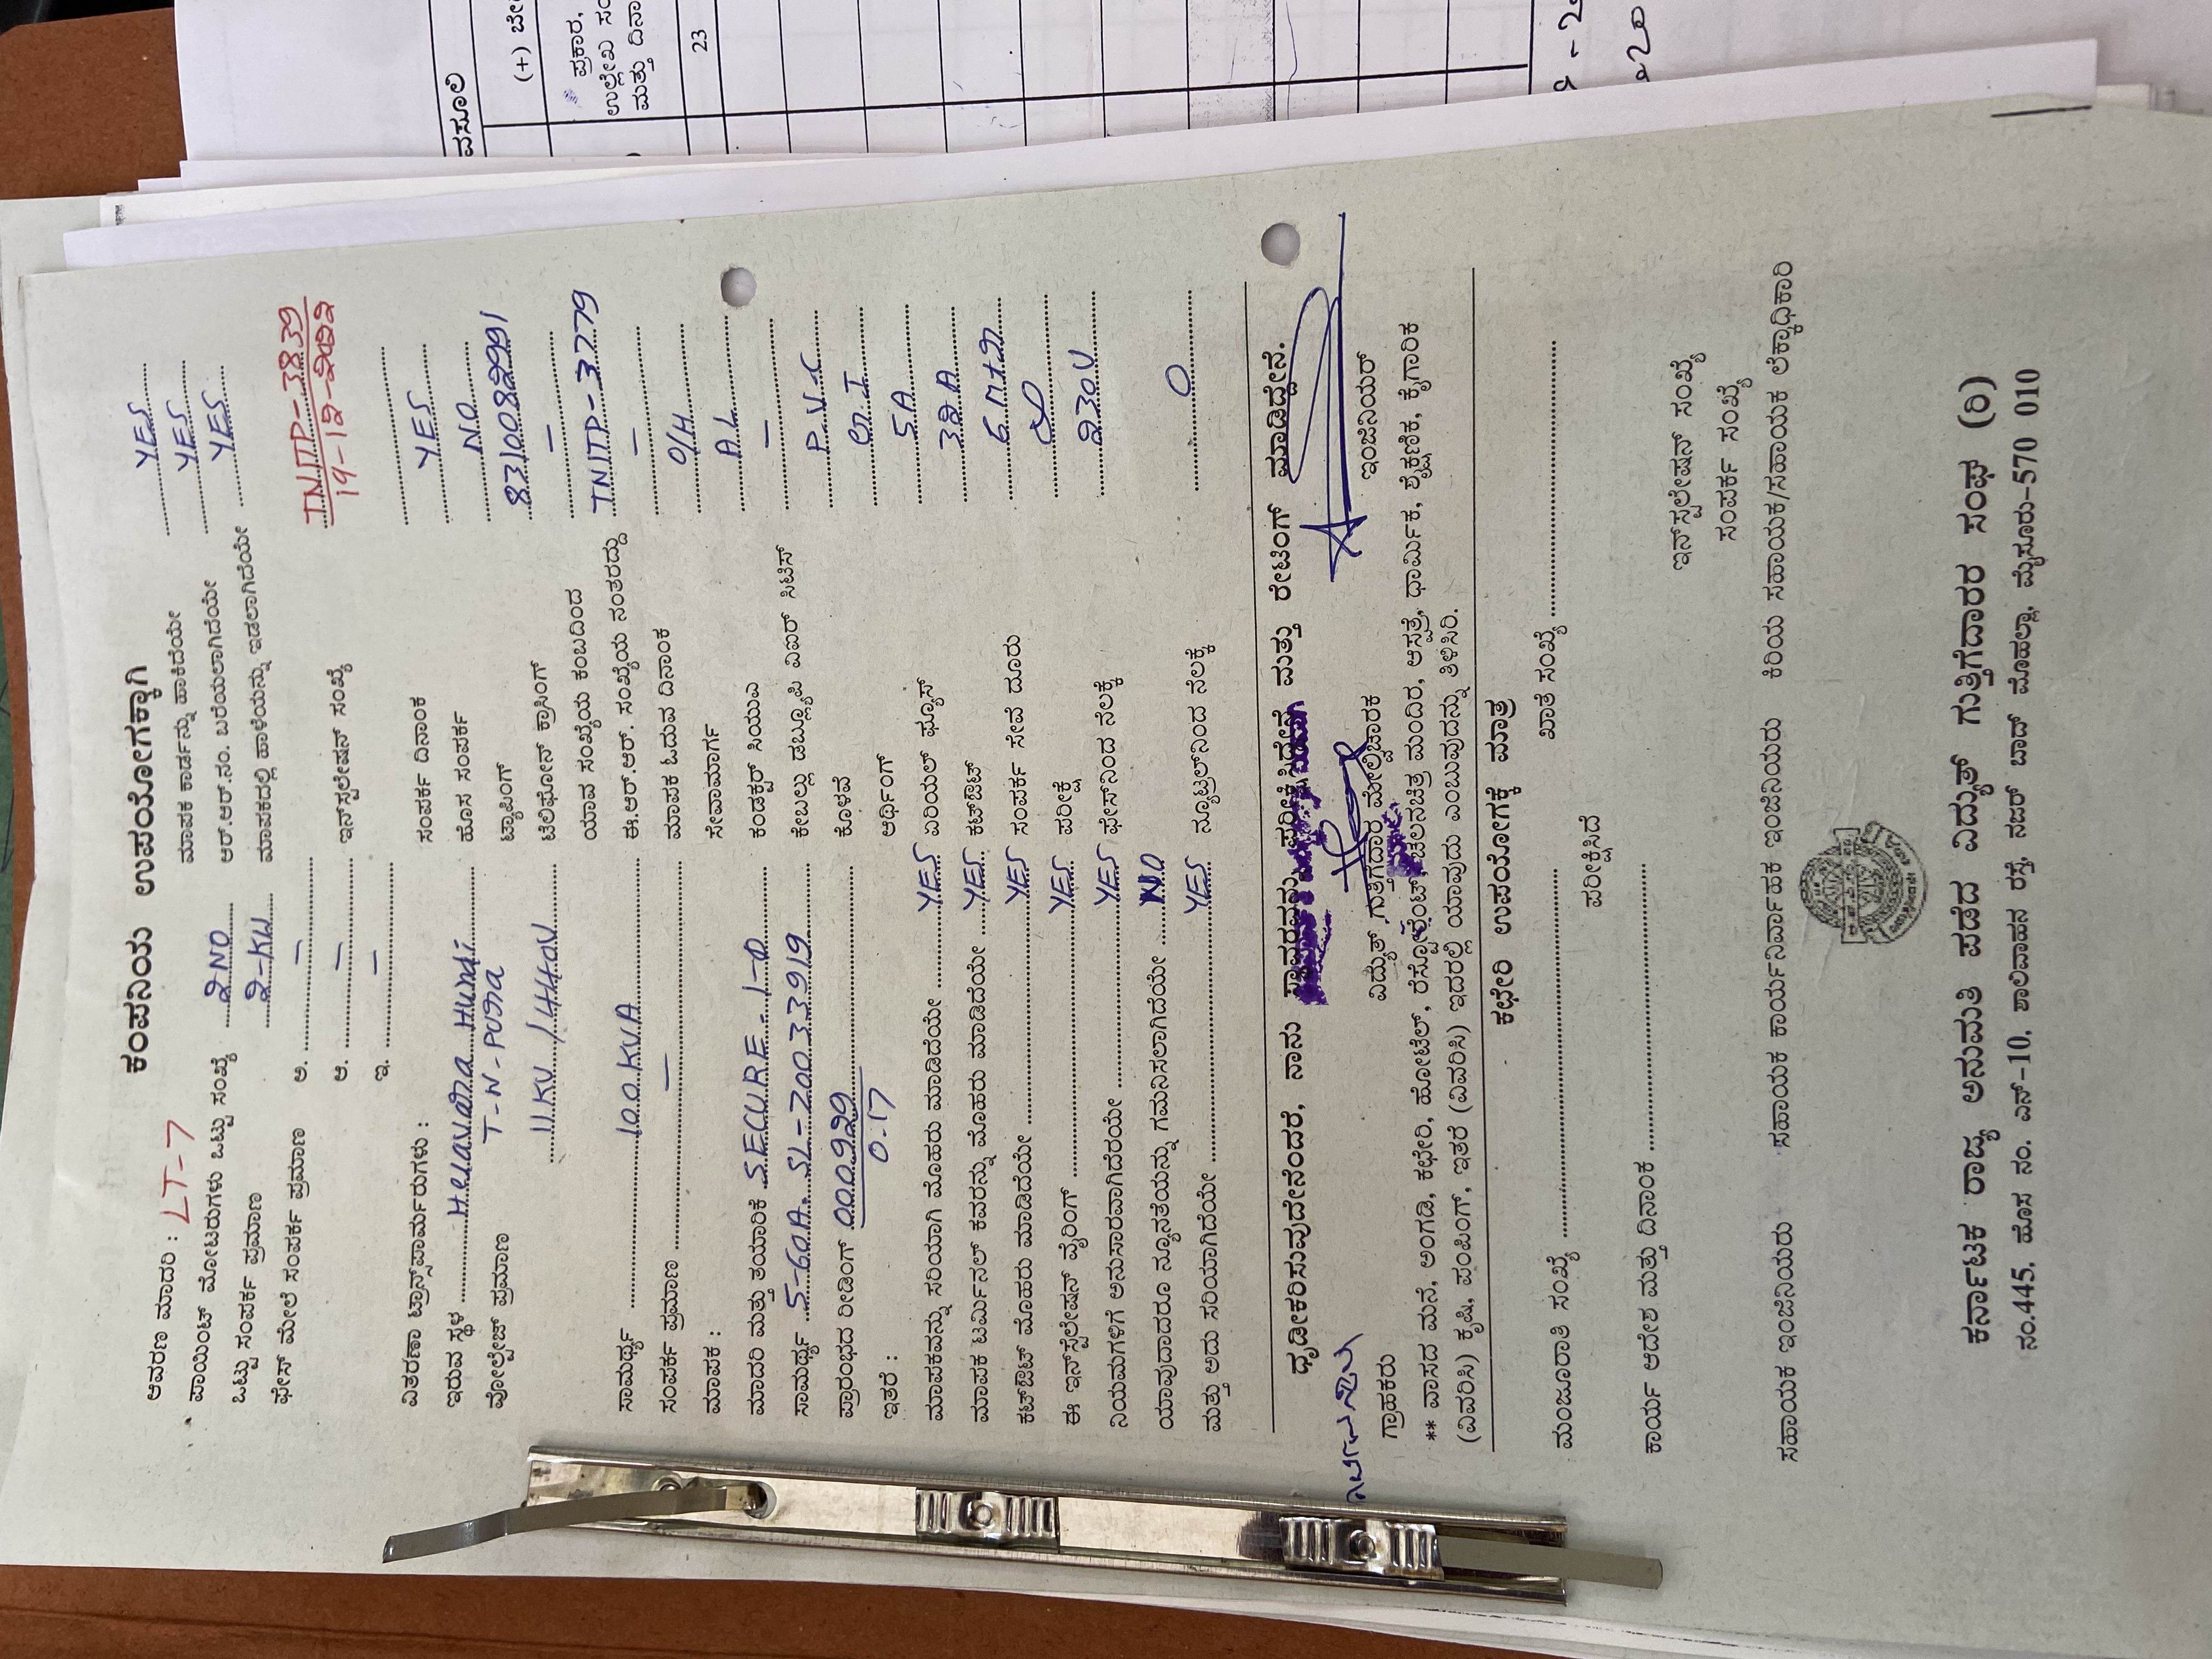 ವಸೂಲಿ
(+) ಚೇ
ಪ್ರಕಾರ,
ಉಲ್ಲೇಖ ಸಂ
ಮತ್ತು ದಿನಾ
23
ಕಂಪನಿಯ ಉಪಯೋಗಕ್ಕಾಗಿ
ಆವರಣ ಮಾದರಿ : LT-7 ಮಾಪಕ ಕಾರ್ಡನ್ನು ಹಾಕಿದೆಯೇ YES
ಪಾಯಿಂಟ್ ಮೋಟರುಗಳು ಒಟ್ಟು ಸಂಖ್ಯೆ 2NO ಆರ್.ಆರ್.ನಂ. ಬರೆಯಲಾಗಿದೆಯೇ YES
ಒಟ್ಟು ಸಂಪರ್ಕ ಪ್ರಮಾಣ 2-KW ಮಾಪಕದಲ್ಲಿ ಹಾಳೆಯನ್ನು ಇಡಲಾಗಿದೆಯೇ YES
ಫೇಸ್ ಮೇಲೆ ಸಂಪರ್ಕ ಪ್ರಮಾಣ ಅ. —
ಆ. — ಇನ್‌ಸ್ಟಲೇಷನ್ ಸಂಖ್ಯೆ TNITP-3839
ಇ. — 19-12-2022
ವಿತರಣಾ ಟ್ರಾನ್ಸ್‌ಫಾರ್ಮರುಗಳು : ಸಂಪರ್ಕ ದಿನಾಂಕ
ಇರುವ ಸ್ಥಳ Heuvana Hundi ಹೊಸ ಸಂಪರ್ಕ YES
T-N-PURA ಟ್ಯಾಪಿಂಗ್ NO
ವೋಲ್ಟೇಜ್ ಪ್ರಮಾಣ 11KV/440V ಟೆಲಿಫೋನ್ ಕ್ರಾಸಿಂಗ್ 8310082991
ಯಾವ ಸಂಖ್ಯೆಯ ಕಂಬದಿಂದ —
ಸಾಮರ್ಥ್ಯ 100KVA ಈ.ಆರ್.ಆರ್. ಸಂಖ್ಯೆಯ ನಂತರದ್ದು TNITP-3779
ಸಂಪರ್ಕ ಪ್ರಮಾಣ — ಮಾಪಕ ಓದುವ ದಿನಾಂಕ —
ಮಾಪಕ : ಸೇವಾಮಾರ್ಗ O/H
ಮಾದರಿ ಮತ್ತು ತಯಾರಿಕೆ SECURE 1-Ø ಕಂಡಕ್ಟರ್ ಸಿಯುಎ AL
ಸಾಮರ್ಥ್ಯ 5-60A. SL-20033919 ಕೇಬಲ್ಲು ಡಬ್ಲ್ಯೂಪಿ ವಿಐಆರ್ ಸಿಟಿಸ್ —
ಪ್ರಾರಂಭದ ರೀಡಿಂಗ್ 000929 ಕೊಳವೆ P.V.C
0.17
ಇತರೆ : ಅರ್ಥಿಂಗ್ G.I
ಮಾಪಕವನ್ನು ಸರಿಯಾಗಿ ಮೊಹರು ಮಾಡಿದೆಯೇ YES ಏರಿಯಲ್ ಫ್ಯೂಸ್ 5A
ಮಾಪಕ ಟರ್ಮಿನಲ್ ಕವರನ್ನು ಮೊಹರು ಮಾಡಿದೆಯೇ YES ಕಟ್‌ಔಟ್ 32A
ಕಟ್‌ಔಟ್ ಮೊಹರು ಮಾಡಿದೆಯೇ YES ಸಂಪರ್ಕ ಸೇವೆ ದೂರು
ಈ ಇನ್‌ಸ್ಟೆಲೇಷನ್ ವೈರಿಂಗ್ YES ಪರೀಕ್ಷೆ
ನಿಯಮಗಳಿಗೆ ಅನುಸಾರವಾಗಿದೆಯೇ YES ಫೇಸ್‌ನಿಂದ ನೆಲಕ್ಕೆ 230V
ಯಾವುದಾದರೂ ನ್ಯೂನತೆಯನ್ನು ಗಮನಿಸಲಾಗಿದೆಯೇ NO
ಮತ್ತು ಅದು ಸರಿಯಾಗಿದೆಯೇ YES ನ್ಯೂಟ್ರಲ್‌ನಿಂದ ನೆಲಕ್ಕೆ 0
ಧೃಡೀಕರಿಸುವುದೇನೆಂದರೆ, ನಾನು ಸ್ಥಾವರವನ್ನು ಪರೀಕ್ಷಿಸಿದ್ದೇನೆ ಮತ್ತು ರೇಟಿಂಗ್ ಮಾಡಿದ್ದೇನೆ.
ಗ್ರಾಹಕರು ವಿದ್ಯುತ್ ಗುತ್ತಿಗೆದಾರ ಮೇಲ್ವಿಚಾರಕ ಇಂಜಿನಿಯರ್
** ವಾಸದ ಮನೆ, ಅಂಗಡಿ, ಕಛೇರಿ, ಹೋಟೆಲ್, ರೆಸ್ಟೋರೆಂಟ್, ಚಲನಚಿತ್ರ ಮಂದಿರ, ಆಸ್ಪತ್ರೆ, ಧಾರ್ಮಿಕ, ಶೈಕ್ಷಣಿಕ, ಕೈಗಾರಿಕ
(ವಿವರಿಸಿ) ಕೃಷಿ, ಪಂಪಿಂಗ್, ಇತರೆ (ವಿವರಿಸಿ) ಇದರಲ್ಲಿ ಯಾವುದು ಎಂಬುವುದನ್ನು ತಿಳಿಸಿರಿ.
ಕಛೇರಿ ಉಪಯೋಗಕ್ಕೆ ಮಾತ್ರ
ಮಂಜೂರಾತಿ ಸಂಖ್ಯೆ ಖಾತೆ ಸಂಖ್ಯೆ
ಪರೀಕ್ಷಿಸಿದೆ
ಕಾರ್ಯ ಆದೇಶ ಮತ್ತು ದಿನಾಂಕ ಇನ್‌ಸ್ಟಲೇಷನ್ ಸಂಖ್ಯೆ
ಸಂಪರ್ಕ ಸಂಖ್ಯೆ
ಸಹಾಯಕ ಇಂಜಿನಿಯರು ಸಹಾಯಕ ಕಾರ್ಯನಿರ್ವಾಹಕ ಇಂಜಿನಿಯರು ಕಿರಿಯ ಸಹಾಯಕ/ಸಹಾಯಕ ಲೆಕ್ಕಾಧಿಕಾರಿ
ಕರ್ನಾಟಕ ರಾಜ್ಯ ಅನುಮತಿ ಪಡೆದ ವಿದ್ಯುತ್ ಗುತ್ತಿಗೆದಾರರ ಸಂಘ (ರಿ)
ನಂ.445, ಹೊಸ ನಂ. ಎನ್-10, ಶಾಲಿವಾಹನ ರಸ್ತೆ, ನಜರ್ ಬಾದ್ ಮೊಹಲ್ಲಾ, ಮೈಸೂರು-570 010